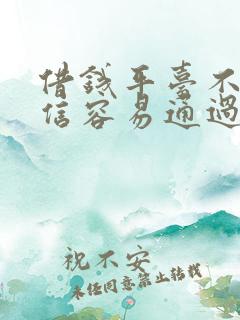 借錢平臺不
信容易通過
祝不安
未经同意禁止转载